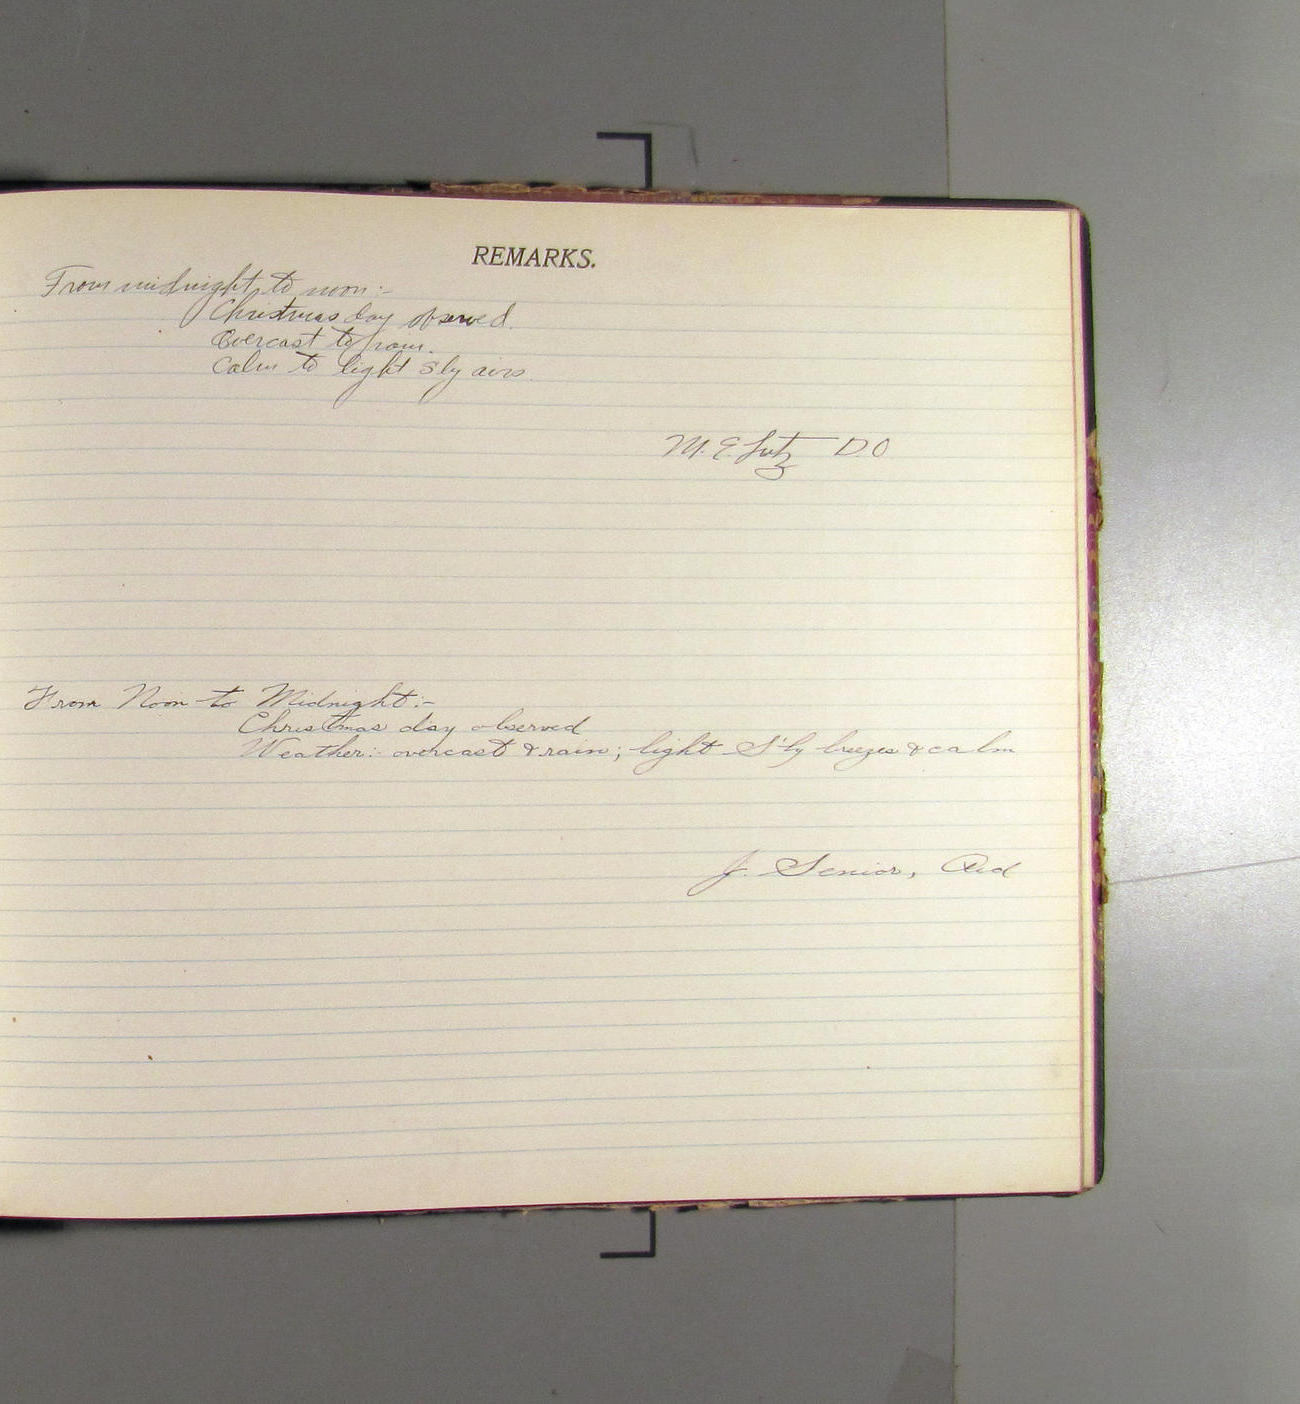 REMARKS.
From midnight to noon:-
Christmas day observed.
Overcast to rain.
Calm to light S'ly airs.
M. E. Lutz D.O
From Noon to Midnight:-
Christmas day observed
Weather:- overcast & rain; light S'ly breezes & calm
J. Senior,